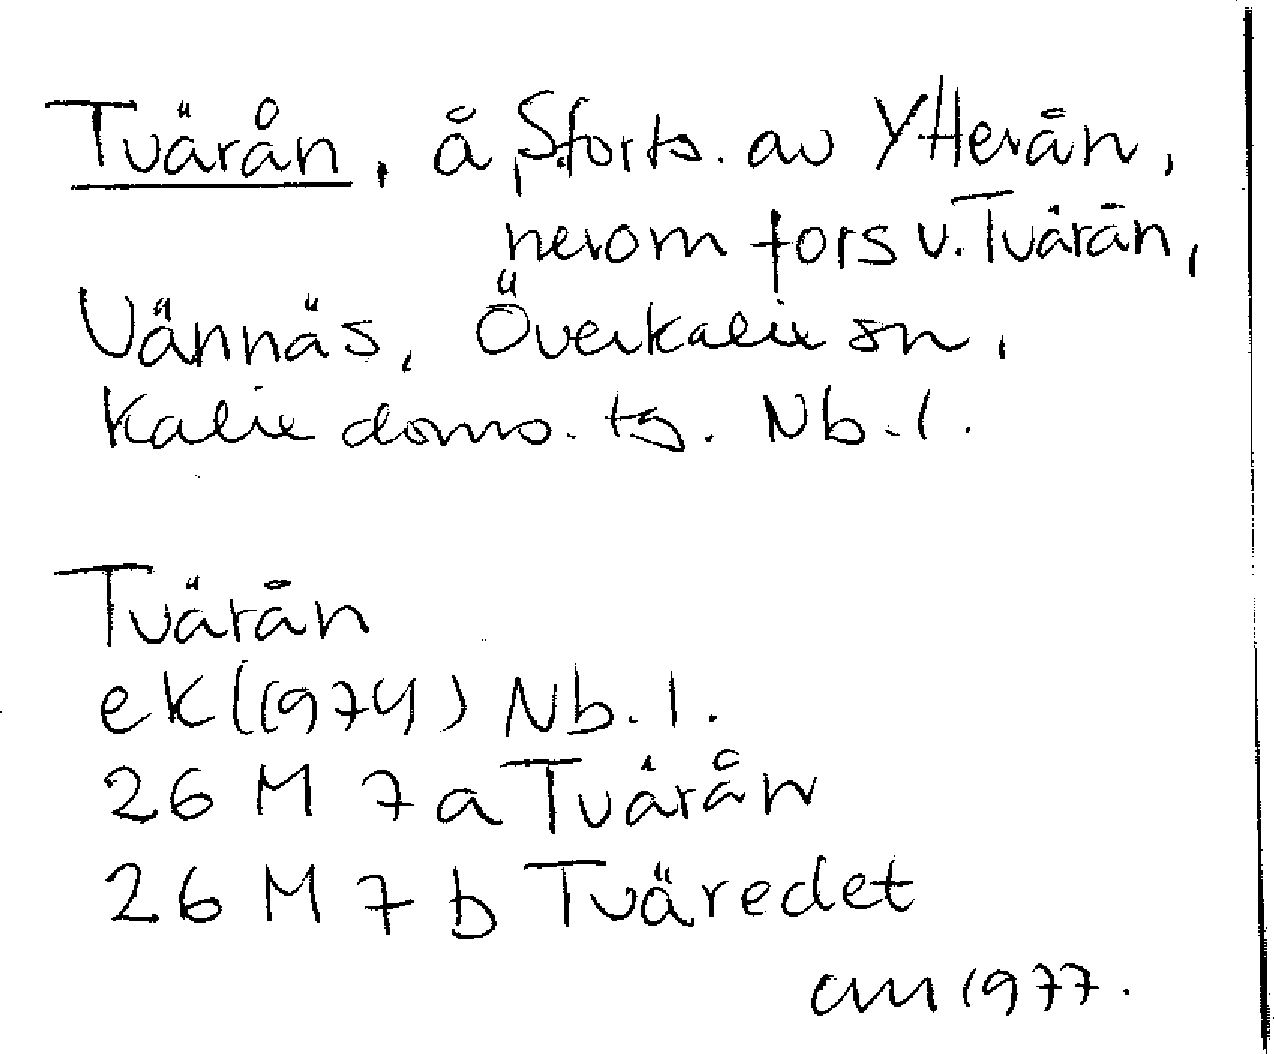 Tvärån, å, S forts. av Ytterån,
nerom fors v. Tvärån,
Vännäs, Överkalix sn,
Kalix doms. tg. Nb. l.
Tvärån
ek (1974) Nb. l.
26 M 7 a Tvärån
26 M 7 b Tväredet
1977.